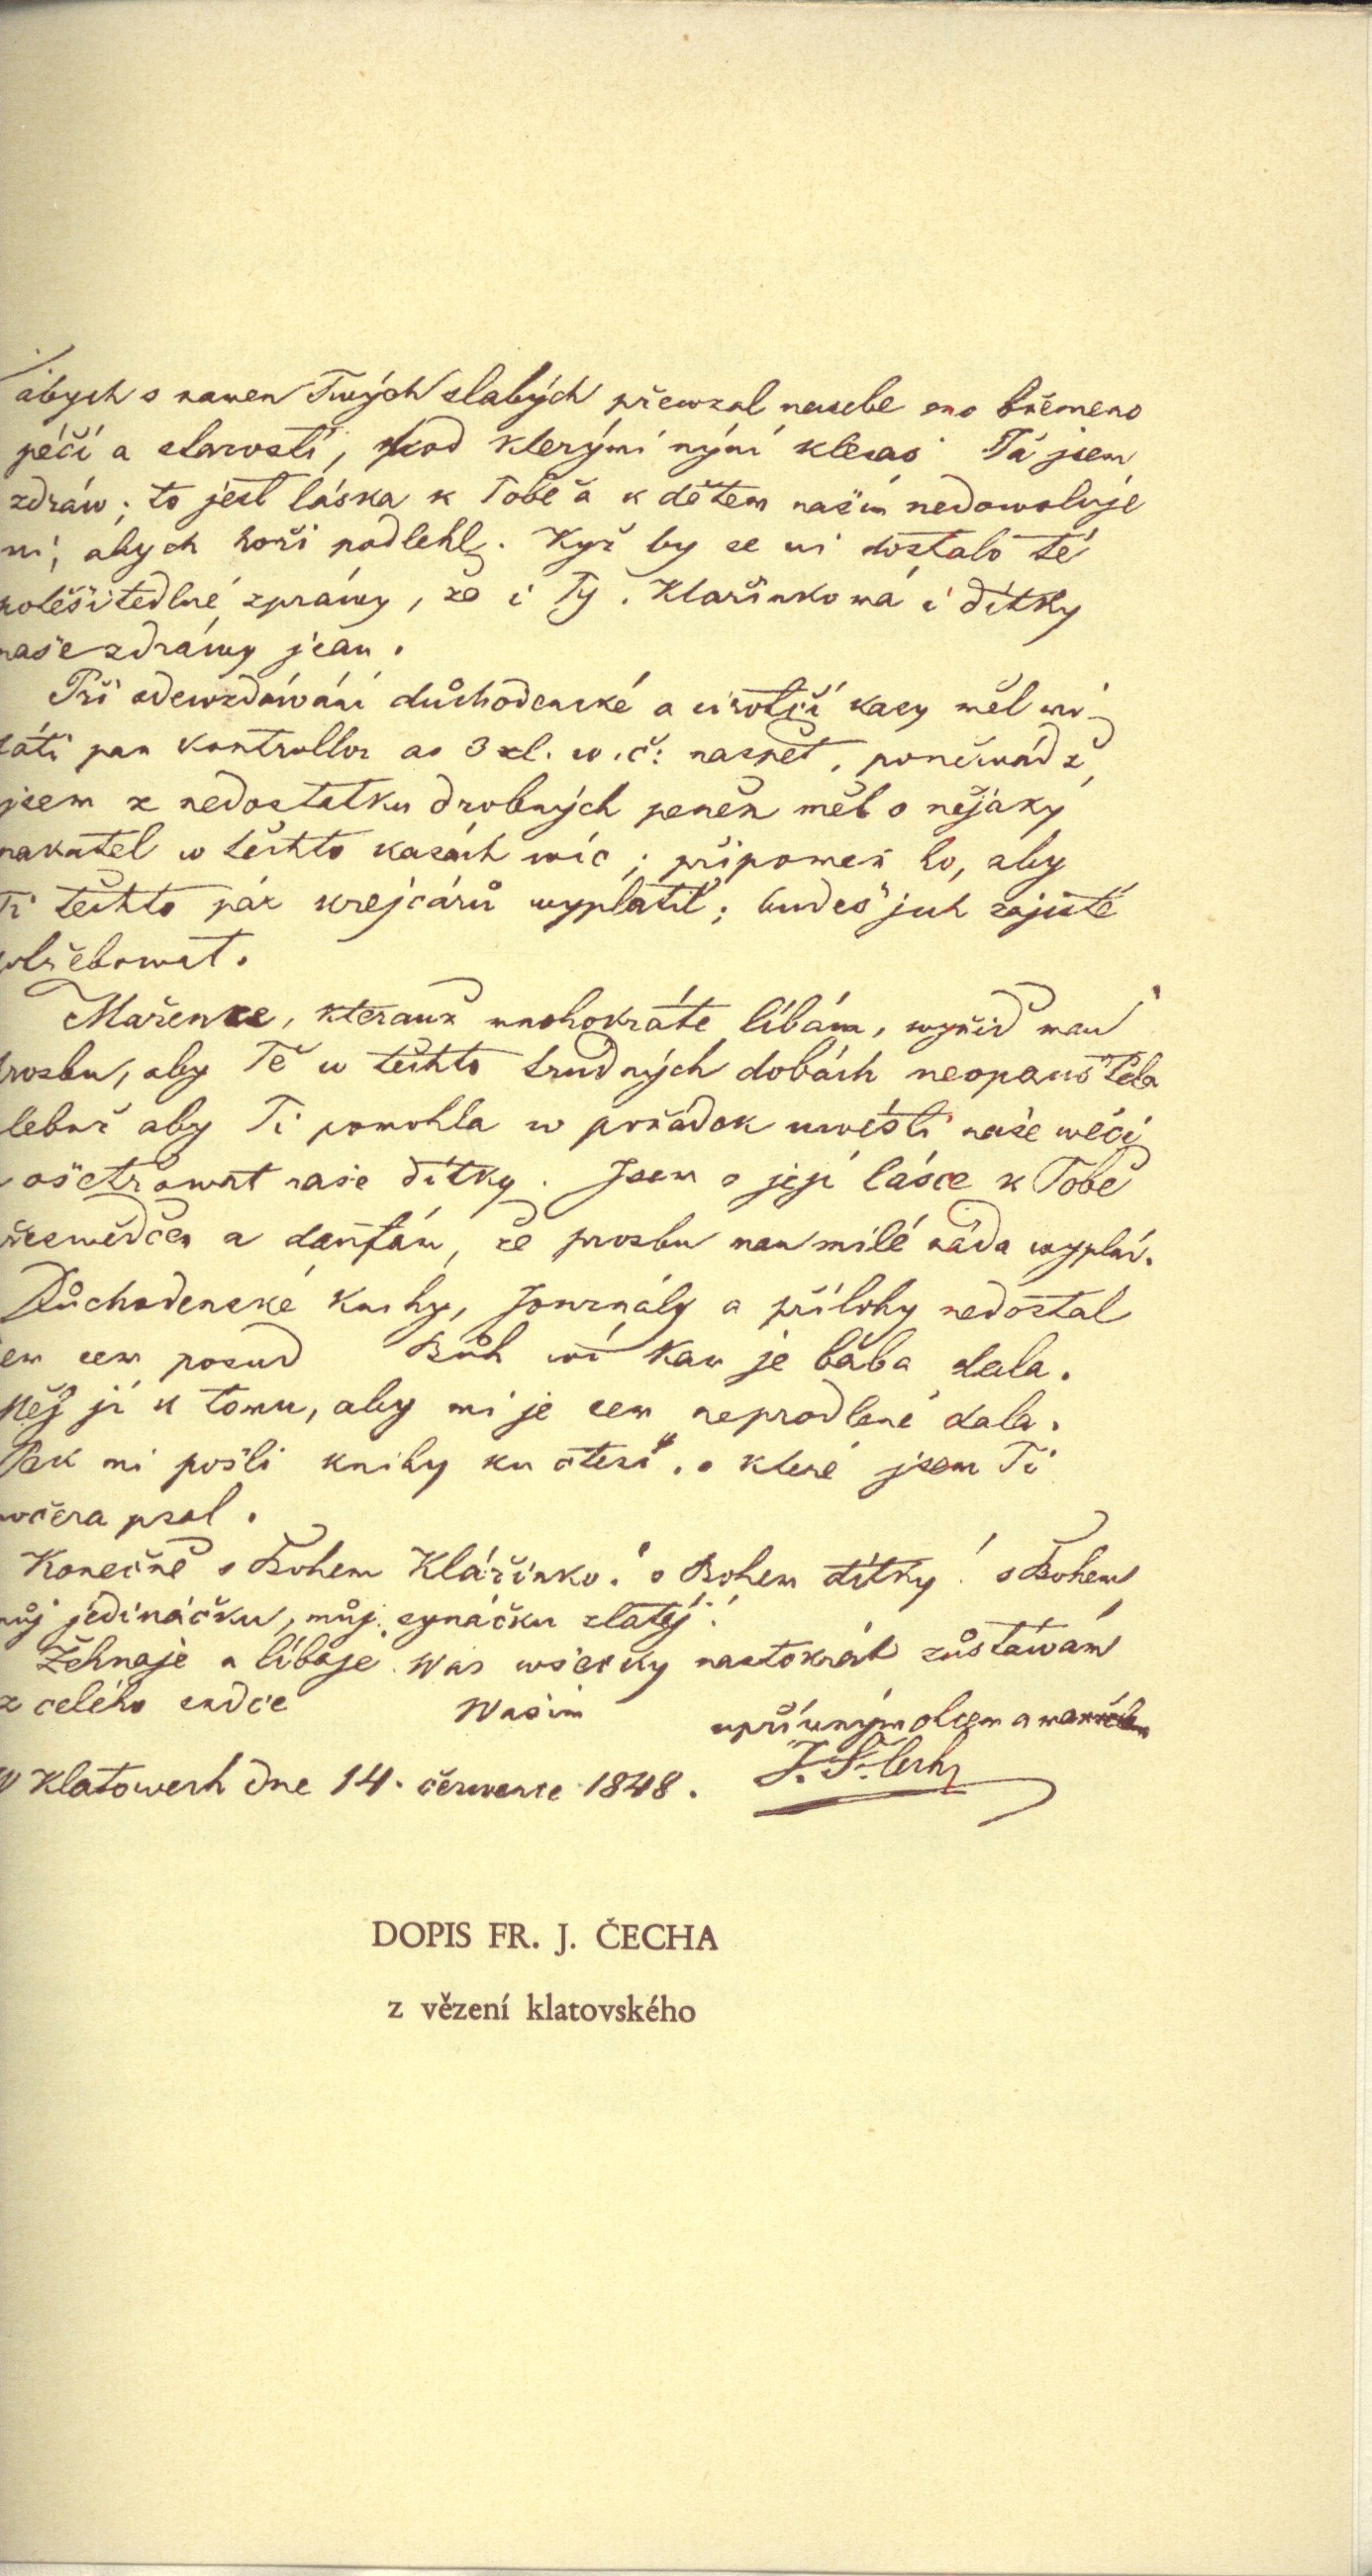 abych s ramen Twých slabých přewzal nasebe ono břemeno
péčí a starostí, pod kterými nýní klesáš Já jsem
zdráw; to jest láska k Tobě a k dětem našim nedowoluje
mi, abych hoři podlehl. Kýž by se mi dostalo té
potěšitedlné zpráwy, že i Ty, Klarinko má i dítky
naše zdráwy jsau.
Při odewzdáwání důchodenské a sirotčí kasy měl mi
pan kontrollor as 3 zl. w. č: nazpět, poněwádž
jsem z nedostatku drobných peněz měl o nějaký
w těchto kasách wíc; připomeň ho, aby
Ti těchto pár krejcárů wyplatil; budeš jich zajisté
potřebowat.
Mařence, kterauž mnohokráte líbám, wyřiď mau
prosbu, aby Tě w těchto trudných dobách neopauštěla
lebrž aby Ti pomohla w pořádek uwésti naše wěci
ošetřowat naše dítky. Jsem o její lásce k Tobě
přeswědčen a daufám, že prosbu mau milé ráda wyplní.
Důchodenské knihy, Journály a přílohy nedostal
sem posud Bůh wí kam je bába dala.
jí k tomu, aby mi je sem neprodleně dala.
Pak mi pošli knihy ku čtení, o které jsem Ti
wčera psal.
Konečně s Bohem Klářinko! s Bohem dítky! s Bohem
můj jedináčku, můj synáčku zlatéj!
Žehnaje a líbaje Was wšecky nastokrát zůstáwám
z celého srdce Wašim upřímným otcem a manželem
W Klatowech dne 14. čerwence 1848. F. J. Čech
DOPIS FR. J. ČECHA
z vězení klatovského